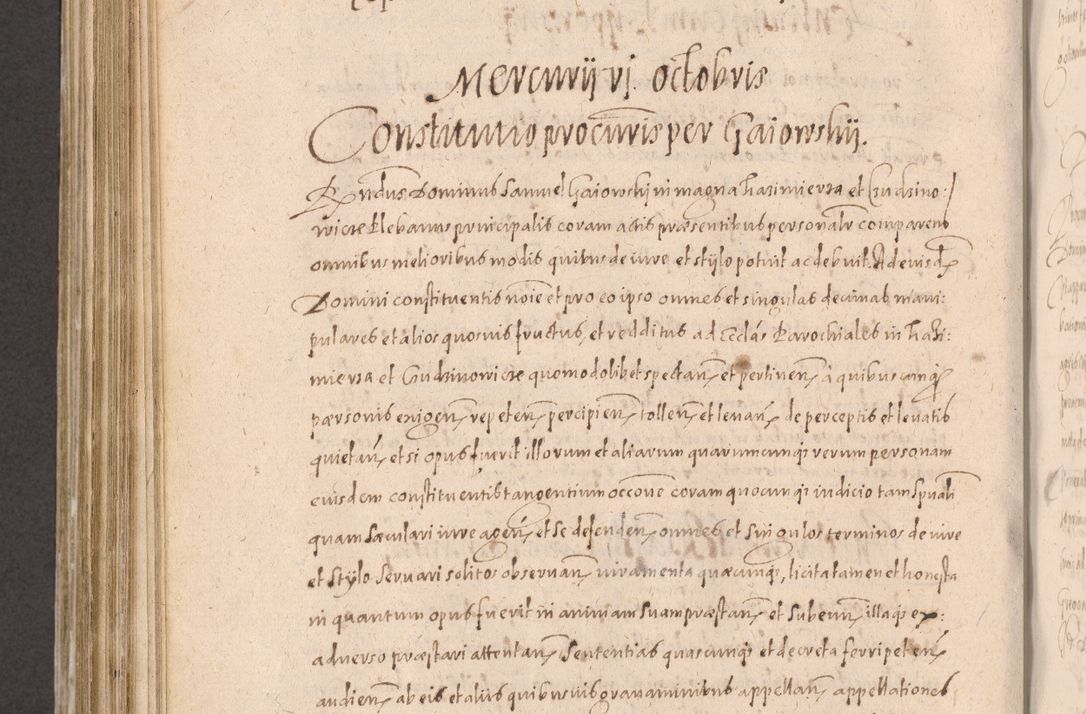 Mercurij vj. octobris
Constitutio procuris per Gaiowskij.
Rndus Dominus Samuel Gaiowskj in magna Kazimierza et Gudzino:
wicze Plebanus principalis coram actis præsentibus personalr comparens
omnibus melioribus modis quibus de iure et stÿlo potuit ac debuit. Ad eiusdē
Domini constituentis noīe et pro eo ipso omnes et singulas decimas mani
pulares et alios quosuis fructus, et redditus ad Ecclās Parochiales in Kazi:
mierza et Gudzinowicze quomodolibet spectan̄ et pertinen̄ à quibuscunq̨
personis exigen̄ repeten̄ percipien̄ tollen̄ et leuan̄ de perceptis et leuatis
quietan̄ et si opus fuerit illorum et aliarum quarumcunq̨ rerum personam
eiusdem constituentis tangentium occōne coram quocunq̨ iudicio tam Spūali
quam sæculari iure agen̄ et se defenden̄ omnes et singulos terminos de iure
et Stÿlo Seruari solitos obseruan̄ iuramenta quæcunq̨, licita tamen et honesta
in quantum opus fuerit in animam Suam præstan̄ et Subeun̄ illaq̨ ex:
aduerso præstari attentan̄ Sententias quascunq̨ et decreta ferri peten̄
audien̄ ab eis et alijs quibusuis grauaminibus appellan̄ appellationes